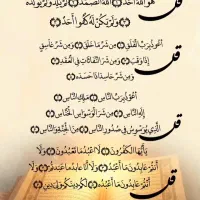 قل هُوَ اللَّهُ أَحَدٌ اللَّهُ الصَّمَدُ لَمْ يَلِدْ وَلَمْ يُولَدْ
وَلَمْ يَكُن لَّهُ كُفُوًا أَحَدٌ
قل أَعُوذُ بِرَبِّ الْفَلَقِ مِن شَرِّ مَا خَلَقَ وَمِن شَرِّ غَاسِقٍ
إِذَا وَقَبَ وَمِن شَرِّ النَّفَّاثَاتِ فِي الْعُقَدِ
وَمِن شَرِّ حَاسِدٍ إِذَا حَسَدَ
قل أَعُوذُ بِرَبِّ النَّاسِ مَلِكِ النَّاسِ
إِلَهِ النَّاسِ مِن شَرِّ الْوَسْوَاسِ الْخَنَّاسِ
الَّذِي يُوَسْوِسُ فِي صُدُورِ النَّاسِ مِنَ الْجِنَّةِ وَالنَّاسِ
قل يَا أَيُّهَا الْكَافِرُونَ لَا أَعْبُدُ مَا تَعْبُدُونَ وَلَا
أَنتُمْ عَابِدُونَ مَا أَعْبُدُ وَلَا أَنَا عَابِدٌ مَّا عَبَدتُّمْ وَلَا
أَنتُمْ عَابِدُونَ مَا أَعْبُدُ لَكُمْ دِينُكُمْ وَلِيَ دِينِ